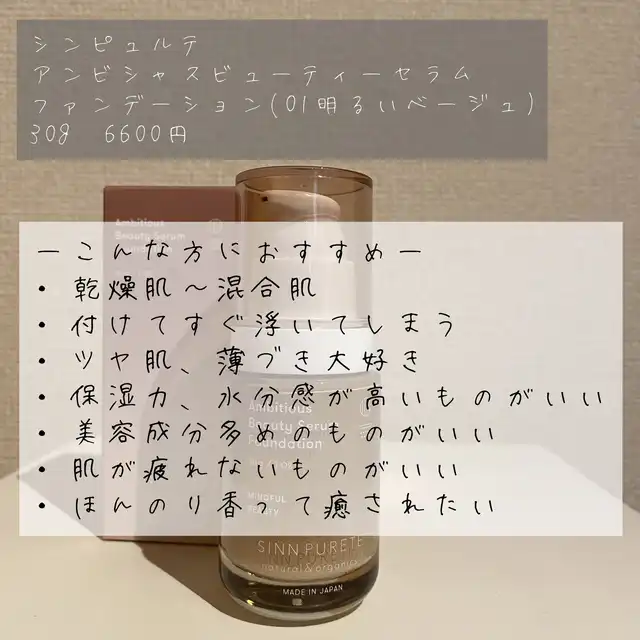 シンピュルテ
アンビシャスビューティーセラム
ファンデーション(01明るいベージュ)
30g 6600円
Ambitious
Beauty Serum
ーこんな方におすすめー
・乾燥肌〜混合肌
・付けてすぐ浮いてしまう
・ツヤ肌、薄づき大好き
・保湿力、水分感が高いものがいい
・美容成分多めのものがいい
・肌が疲れないものがいい
・ほんのり香って癒されたい
Ambitious
Beauty Serum
Foundation
MINDFUL
BEAUTY
SINN PURETÉ
natural & organic
MADE IN JAPAN